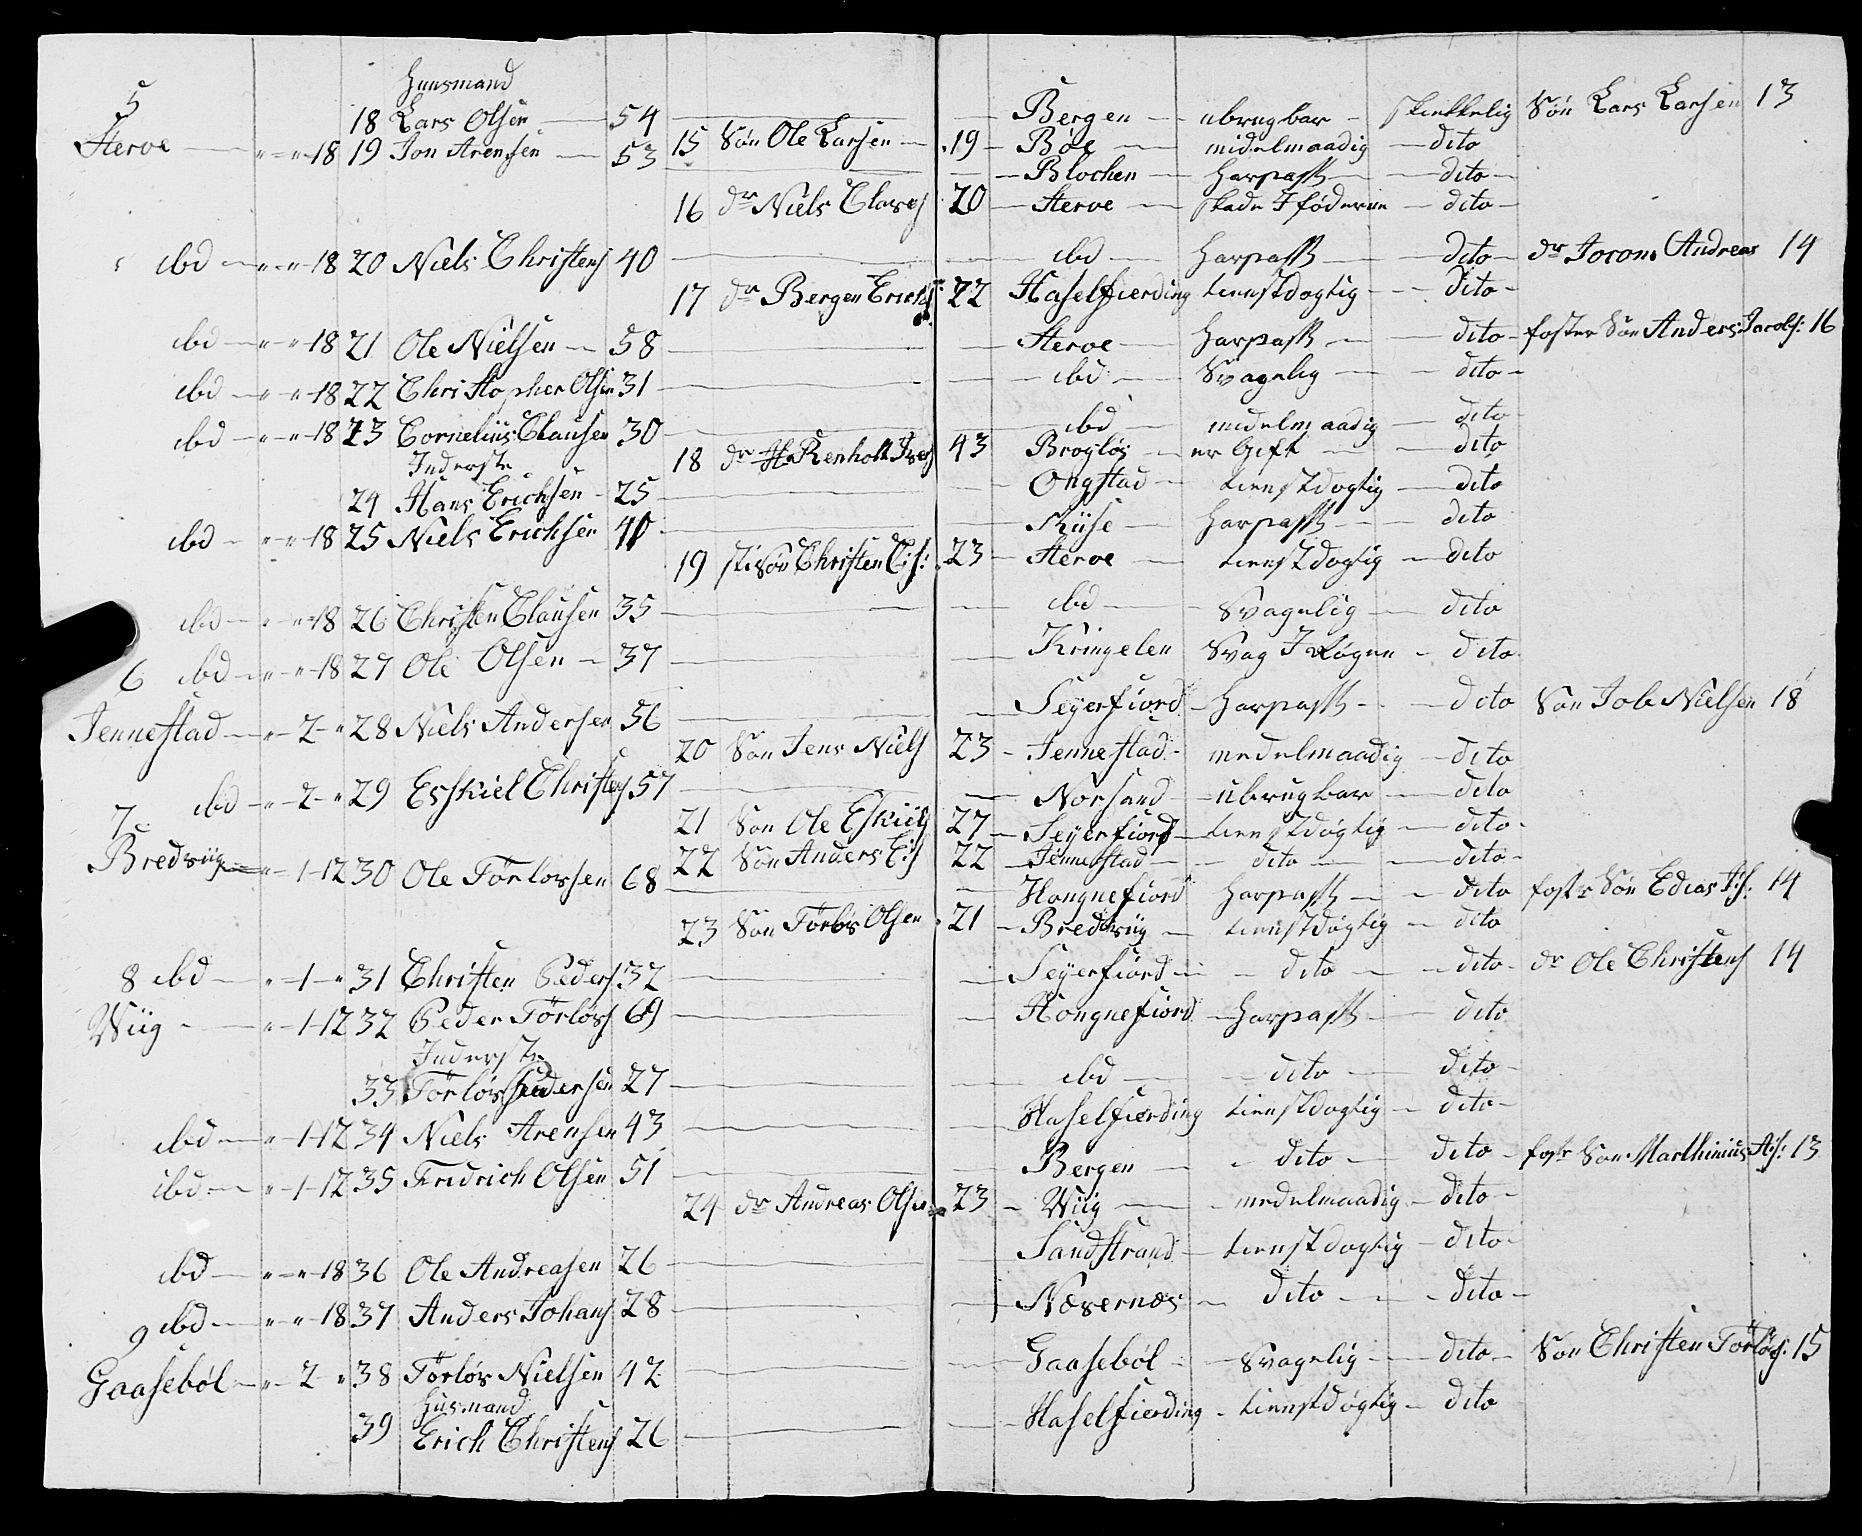 Huusmand
5 18 Lars Olsen — 54 — Bergen — ubrugbar — skikkelig Søn Lars Larsen 13
Sterve — " — " — 18 19 Jon Arensen — 53 15 Søn Ole Larsen — 19 — Bøe — midelmaadig — dito
— Blochen — harpass — dito —
16 dr Niels Claves 20 — Sterve — skade I føderne — dito —
ibd — " — " — 18 20 Niels Christens 40 — ibd — harpass — dito — dr Jocom Andreas 14
17 dr Bergen Erichs: 22 Haselfierding tienstdogtig — dito —
ibd — " — " 18 21 Ole Nielsen — 58 — Sterve — harpass — dito — foster Søn Anders Jacobs: 16
ibd — " — " — 18 22 Christopher Olsen 31 — ibd — Svagelig — dito —
ibd — " — " — 18 23 Cornelius Clausen 30 — ibd — midelmaadig — dito
Inderste 18 dr H: Renholt Ivers 43 Brogløs — er Gift — dito
24 Hans Erichsen — 25 — Ongstad — tienstdogtig — dito
ibd — " — " — 18 25 Niels Erichsen 40 — Kiise — harpass — dito
19 stiSøn Christen C:s: 23 — Sterve — tienstdogtig — dito
ibd — " — " — 18 26 Christen Clausen 35 — ibd — Svagelig — dito
6 ibd — " — " — 18 27 Ole Olsen — 37 — Kringelen Svag I Øgnn — dito
Jennestad — " — 2 — " 28 Niels Andersen 56 — Seyerfiord — harpass — dito Søn Job Nielsen 18
20 Søn Jens Niels 23 — Jennestad — medelmaadig — dito
ibd — " — 2 — " 29 Esskiel Christens 57 — Norsand — ubrugbar — dito
7 21 Søn Ole Eskiils 27 — Seyerfiord — tienstdogtig — dito —
Bredviig — " — 1 — 12 30 Ole Törlovsen 68 22 Søn Anders E:s 22 — Jennestad — dito — dito —
— Hongnefiord harpass — dito fostr Søn Edias P:s: 14
23 Søn Törløs Olsen 21 — Bredviig — tienstdogtig — dito
8 ibd — " — 1 — " 31 Christen Peders: 32 — Seyerfiord — dito — dito — dr Ole Christens 14
Wiig — " — 1 — 12 32 Peder Törløvs 69 — Hongnefiord — harpass — dito
Inderste
33 Törløv Pedersen 27 — ibd — dito — dito —
ibd — " — 1 — 12 34 Niels Arensen 43 — Haselfierding tienstdogtig — dito —
ibd — " — 1 — 12 35 Fridrich Olsen 51 — Bergen — dito — dito — fostr Søn Marthinius A:s: 13
24 dr Andreas Olsen 23 — Wiig — medelmaadig — dito —
ibd — " — " — 18 36 Ole Andreasen 26 — Sandstrand — tienstdogtig — dito —
9 ibd — " — " — 18 37 Anders Johans 28 — Næsernæs — dito — dito —
Gaasebøl — " — 2 " 38 Törløv Nielsen 42 — Gaasebøl — Svagelig — dito — Søn Christen Törløvs: 15
Husmand
39 Erich Christens 26 — Haselfierding — tienstdøgtig — dito